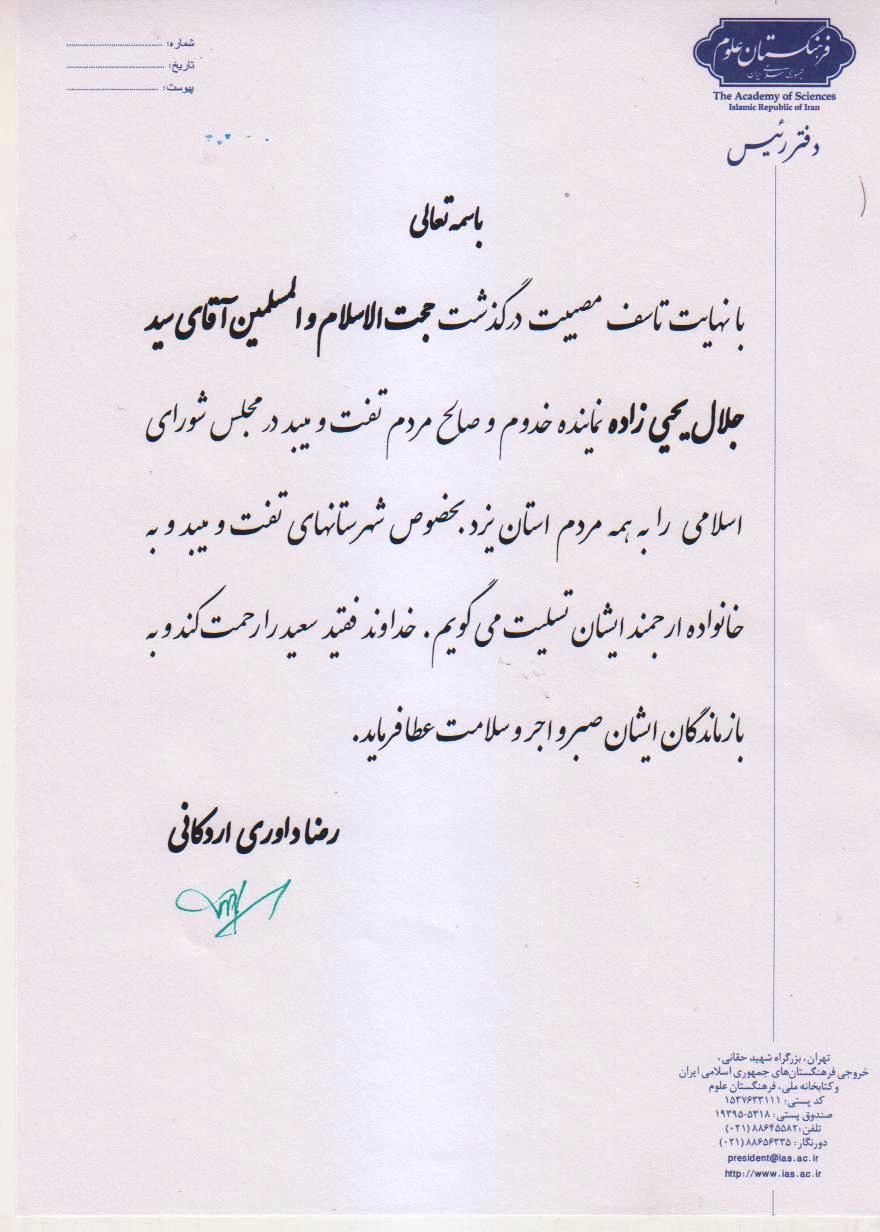 فرهنگستان علوم
جمهوری اسلامی ایران
The Academy of Sciences
Islamic Republic of Iran
دفتر رئیس
شماره: ........................
تاریخ: ........................
پیوست: ........................
باسمه تعالی
با نهایت تاسف مصیبت درگذشت حجت الاسلام و المسلمین آقای سید
جلال یحیی زاده نماینده خدوم و صالح مردم تفت و میبد در مجلس شورای
اسلامی را به همه مردم استان یزد بخصوص شهرستانهای تفت و میبد و به
خانواده ارجمند ایشان تسلیت می گویم. خداوند فقید سعید را رحمت کند و به
بازماندگان ایشان صبر و اجر و سلامت عطا فرماید.
رضا داوری اردکانی
تهران، بزرگراه شهید حقانی،
خروجی فرهنگستان‌های جمهوری اسلامی ایران
و کتابخانه ملی، فرهنگستان علوم
کد پستی: ۱۵۳۷۶۳۳۱۱۱
صندوق پستی: ۵۳۱۸-۱۹۳۹۵
تلفن: ۸۸۶۴۵۵۸۲ (۰۲۱)
دورنگار: ۸۸۶۵۶۳۳۵ (۰۲۱)
president@ias.ac.ir
http://www.ias.ac.ir